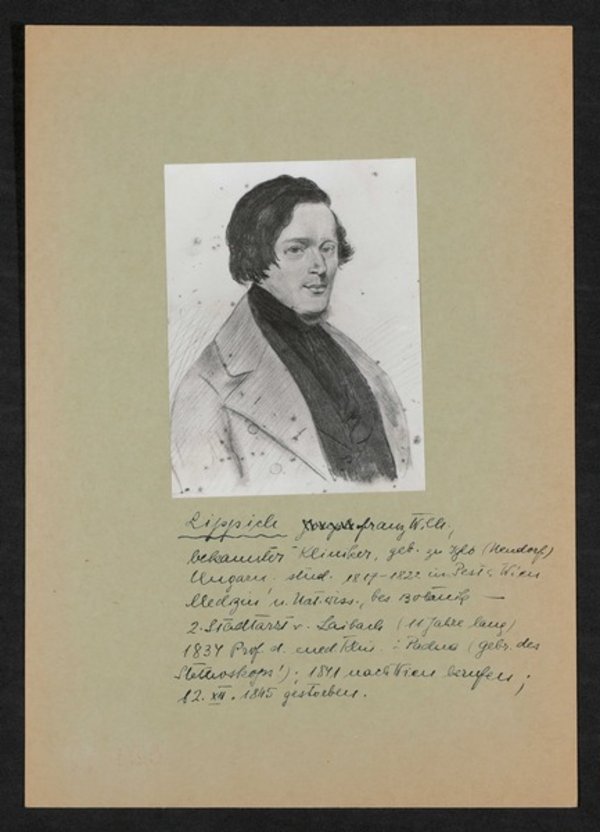 Lippich Franz Wilh.,
bekannter Kliniker, geb. zu Iglo (Neudorf)
Ungarn, stud. 1817-1822 in Pest u. Wien
Medizin u. Nat.wiss., bes Botanik —
2. Stadtarzt v. Laibach (11 Jahre lang)
1834 Prof d. med Klin. i. Padua (gebr. des
Stethoskops!); 1841 nach Wien berufen;
12. XII. 1845 gestorben.